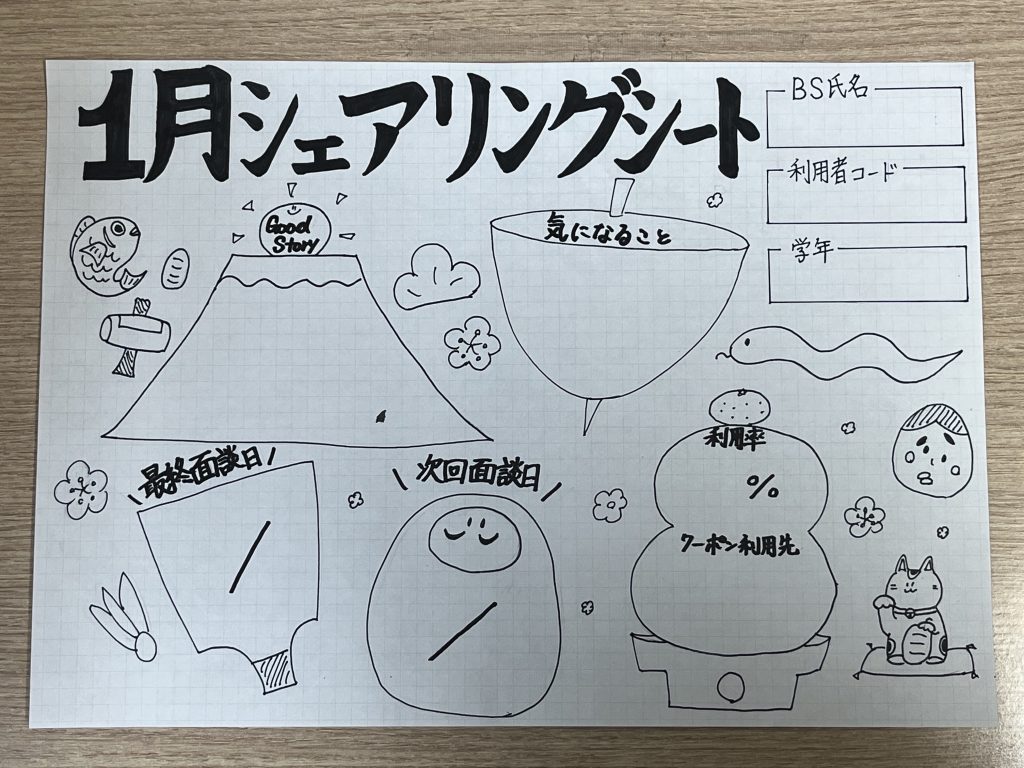 1月シェアリングシート
BS氏名
利用者コード
学年
Good
Story
気になること
\最終面談日/
/
\次回面談日/
/
利用率
%
クーポン利用先